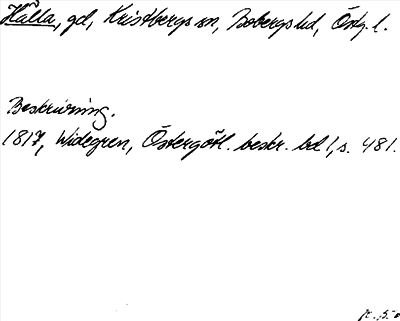 Hålla, gd, Kristbergs sn, Bobergs hd, Östg. l.
Beskrivning.
1817, Widegren, Östergötl. beskr. bd 1, s. 481.